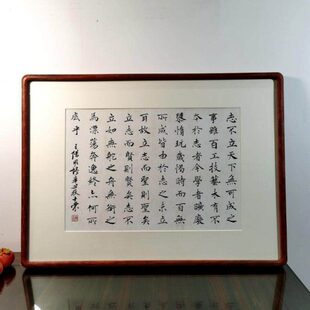 志不立天下無可成之
事雖百工技藝未有不
本於志者今學者曠廢
隳惰玩歲愒時而百無
所成皆由於志之未立
耳故立志而聖則聖矣
立志而賢則賢矣志不
立如無舵之舟無銜之
馬漂蕩奔逸終亦何所
底乎 王陽明語